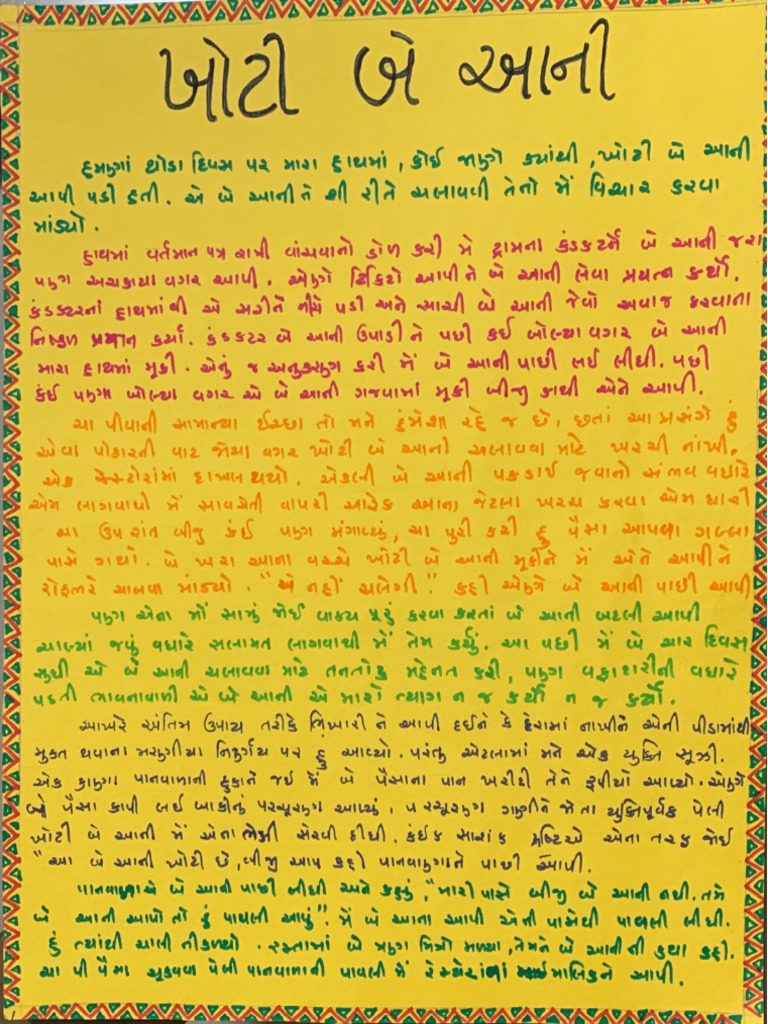 ખોટી બે આની
હમણાં થોડા દિવસ પર મારા હાથમાં, કોઈ જાણે ક્યાંથી, ખોટી બે આની
આવી પડી હતી. એ બે આનીને શી રીતે ચલાવવી તેનો મેં વિચાર કરવા
માંડ્યો.
હાથમાં વર્તમાન પત્ર રાખી વાંચવાનો ડોળ કરી મેં ટ્રામના કંડકટર્ને બે આની જરા
પણ અચકાયા વગર આપી. એણે ટિકિટો આપીને બે આની લેવા પ્રયત્ન કર્યો.
કંડક્ટરનાં હાથમાંથી એ સરીને નીચે પડી અને સાચી બે આની જેવો અવાજ કરવાના
નિષ્ફળ પ્રયત્ન કર્યા. કંડકટર બે આની ઉપાડીને પછી કઈ બોલ્યા વગર બે આની
મારા હાથમાં મૂકી. એનું જ અનુકરણ કરી મેં બે આની પાછી લઈ લીધી. પછી
કંઈ પણ બોલ્યા વગર એ બે આની ગજવામાં મૂકી બીજી કાઢી એને આપી.
ચા પીવાની સામાન્ય ઈચ્છા તો મને હંમેશા રહે જ છે, છતાં આ પ્રસંગે હું
એવા પોકારની વાટ જોયા વગર ખોટી બે આની ચલાવવા માટે ખરચી નાંખી.
એક રેસ્ટોરાંમાં દાખલ થયો. એકલી બે આની પકડાઈ જવાનો સંભવ વધારે
એમ લાગવાથી મેં સાવચેતી વાપરી આઠેક આના જેટલા ખરચ કરવા એમ ધારી
ચા ઉપરાંત બીજુ કંઈ પણ મંગાવ્યું, ચા પુરી કરી હું પૈસા આપવા ગલ્લા
પાસે ગયો. બે ખરા આના વચ્ચે ખોટી બે આની મૂકીને મેં એને આપીને
રોફભરે ચાલવા માંડ્યો. "એ નહીં ચલેગી". કહી એણે બે આની પાછી આપી
પણ એના મોં સામું જોઈ વાક્ય પૂરું કરવા કરતાં બે આની બદલી આપી
ચાલ્યાં જવું વધારે સલામત લાગવાથી મેં તેમ કર્યું. આ પછી મેં બે ચાર દિવસ
સુધી એ બે આની ચલાવવા માટે તનતોડ મહેનત કરી, પણ વફાદારીની વધારે
પડતી ભાવનાવાળી એ બે આની એ મારો ત્યાગ ન જ કર્યો ન જ કર્યો.
આખરે અંતિમ ઉપાય તરીકે ભિખારી ને આપી દઈને કે દેરામાં નાખીને એની પીડામાંથી
મુક્ત થવાના મરણીયા નિર્ણય પર હું આવ્યો. પરંતુ એટલામાં મને એક યુક્તિ સૂઝી.
એક કાણા પાનવાળાની દુકાને જઈ મેં બે પૈસાના પાન ખરીદી તેને રૂપીયો આપ્યો. એણે
બે પૈસા કાપી લઈ બાકીનું પરચૂરણ આપ્યું, પરચૂરણ ગણીને જોતા યુક્તિપૂર્વક પેલી
ખોટી બે આની મેં એના ભેગી સેરવી દીધી. કંઈક સાશંક દ્રષ્ટિએ એના તરફ જોઈ
"આ બે આની ખોટી છે, બીજી આપ કહી પાનવાળાને પાછી આપી.
પાનવાળાએ બે આની પાછી લીધી અને કહ્યું, "મારી પાસે બીજી બે આની નથી. તમે
બે આની આપો તો હું પાવલી આપું". મેં બે આના આપી એની પાસેથી પાવલી લીધી.
હું ત્યાંથી ચાલી નીકળ્યો. રસ્તામાં બે ત્રણ મિત્રો મળ્યા, તેમને બે આની ની કથા કહી.
ચા પી પૈસા ચૂકવવા પેલી પાનવાળાની પાવલી મેં રેસ્ટોરાંમાં માલિકને આપી.